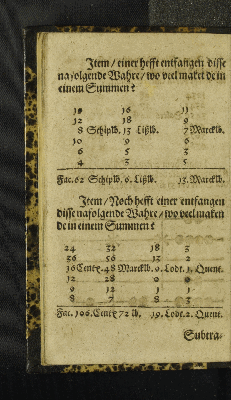 Item / einer hefft entfangen disse
nafolgende Wahre / wo veel maket de in
einem Summen?
19 16 11
12 18 9
8 Schiplb. 13 Lißlb. 7 Marcklb.
10 9 6
6 5 3
4 3 5
Fac. 62 Schiplb. 6. Lißlb. 13. Marcklb.
Item / Noch hefft einer entfangen
disse nafolgende Wahre / wo veel maken
de in einem Summen?
24 32 18 3
36 56 13 2
16 Centz. 48 Marcklb. 9. Lodt. 1. Quent.
12 28 0 0
9 12 1 1
8 7 8 3
Fac. 106. Centz 72 lb. 19. Lodt. 2. Quent.
Subtra-